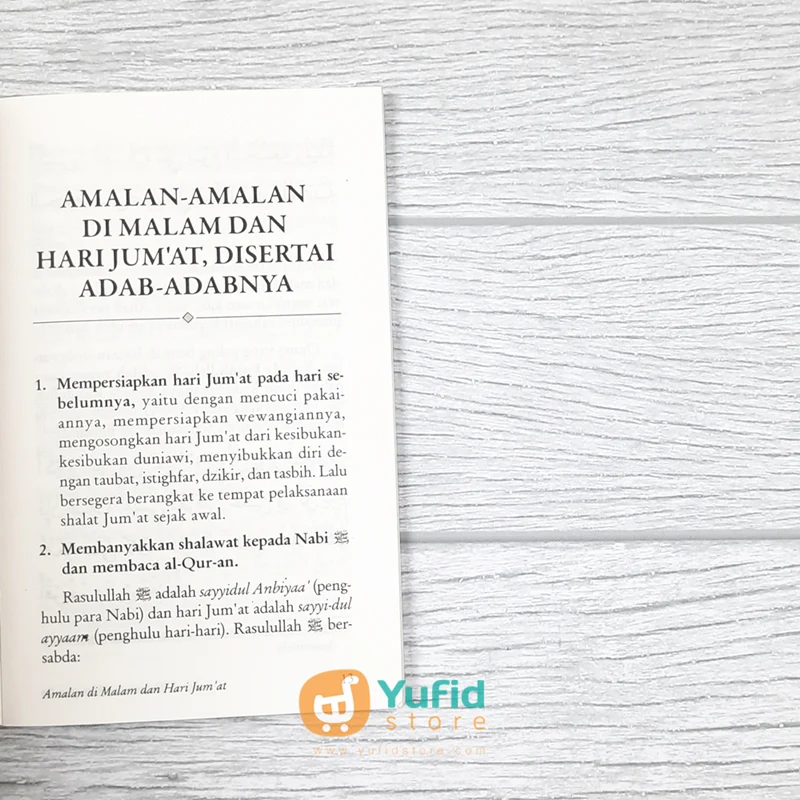 AMALAN-AMALAN
DI MALAM DAN
HARI JUM'AT, DISERTAI
ADAB-ADABNYA
1. Mempersiapkan hari Jum'at pada hari se-
belumnya, yaitu dengan mencuci pakai-
annya, mempersiapkan wewangiannya,
mengosongkan hari Jum'at dari kesibukan-
kesibukan duniawi, menyibukkan diri de-
ngan taubat, istighfar, dzikir, dan tasbih. Lalu
bersegera berangkat ke tempat pelaksanaan
shalat Jum'at sejak awal.
2. Membanyakkan shalawat kepada Nabi ﷺ
dan membaca al-Qur-an.
Rasulullah ﷺ adalah sayyidul Anbiyaa' (peng-
hulu para Nabi) dan hari Jum'at adalah sayyi-dul
ayyaam (penghulu hari-hari). Rasulullah ﷺ ber-
sabda:
Amalan di Malam dan Hari Jum'at
Yufid
store
www.yufidstore.com